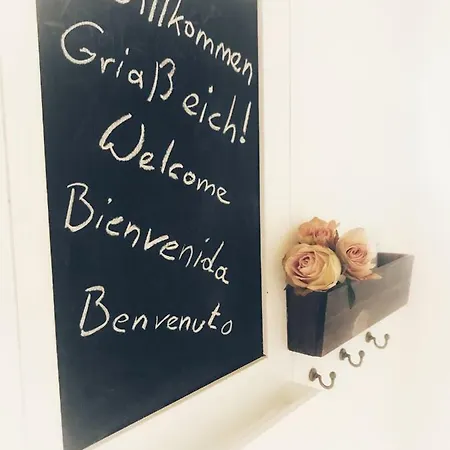 Willkommen
Griaß eich!
Welcome
Bienvenida
Benvenuto